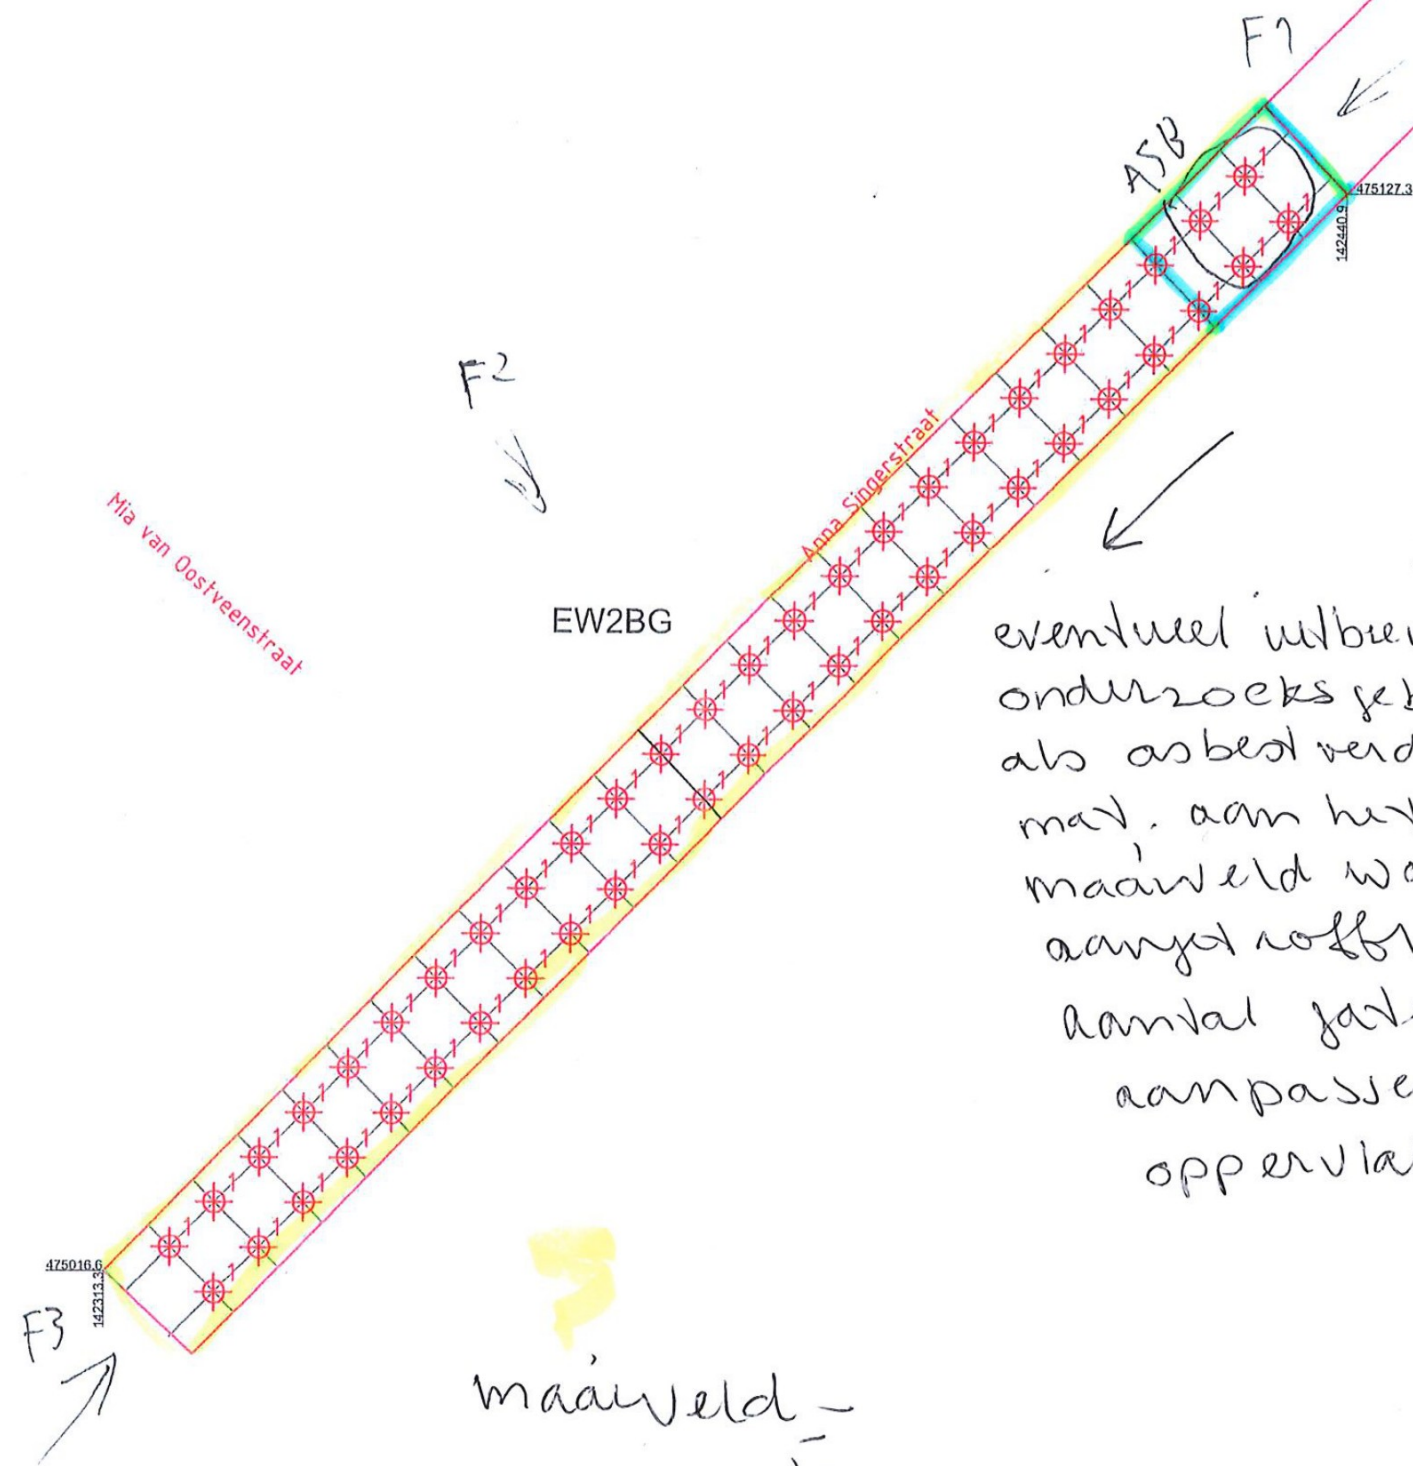 F1
ASB
475127.3
142440.9
F2
Anna Singerstraat
Mia van Oostveenstraat
EW2BG
eventueel uitbrei
onderzoeksgeb
als asbest verd
mat. aan het
maaiveld wo
aangetroffen
aantal gat
aanpasse
oppervla
475016.6
142313.3
F3
maaiveld